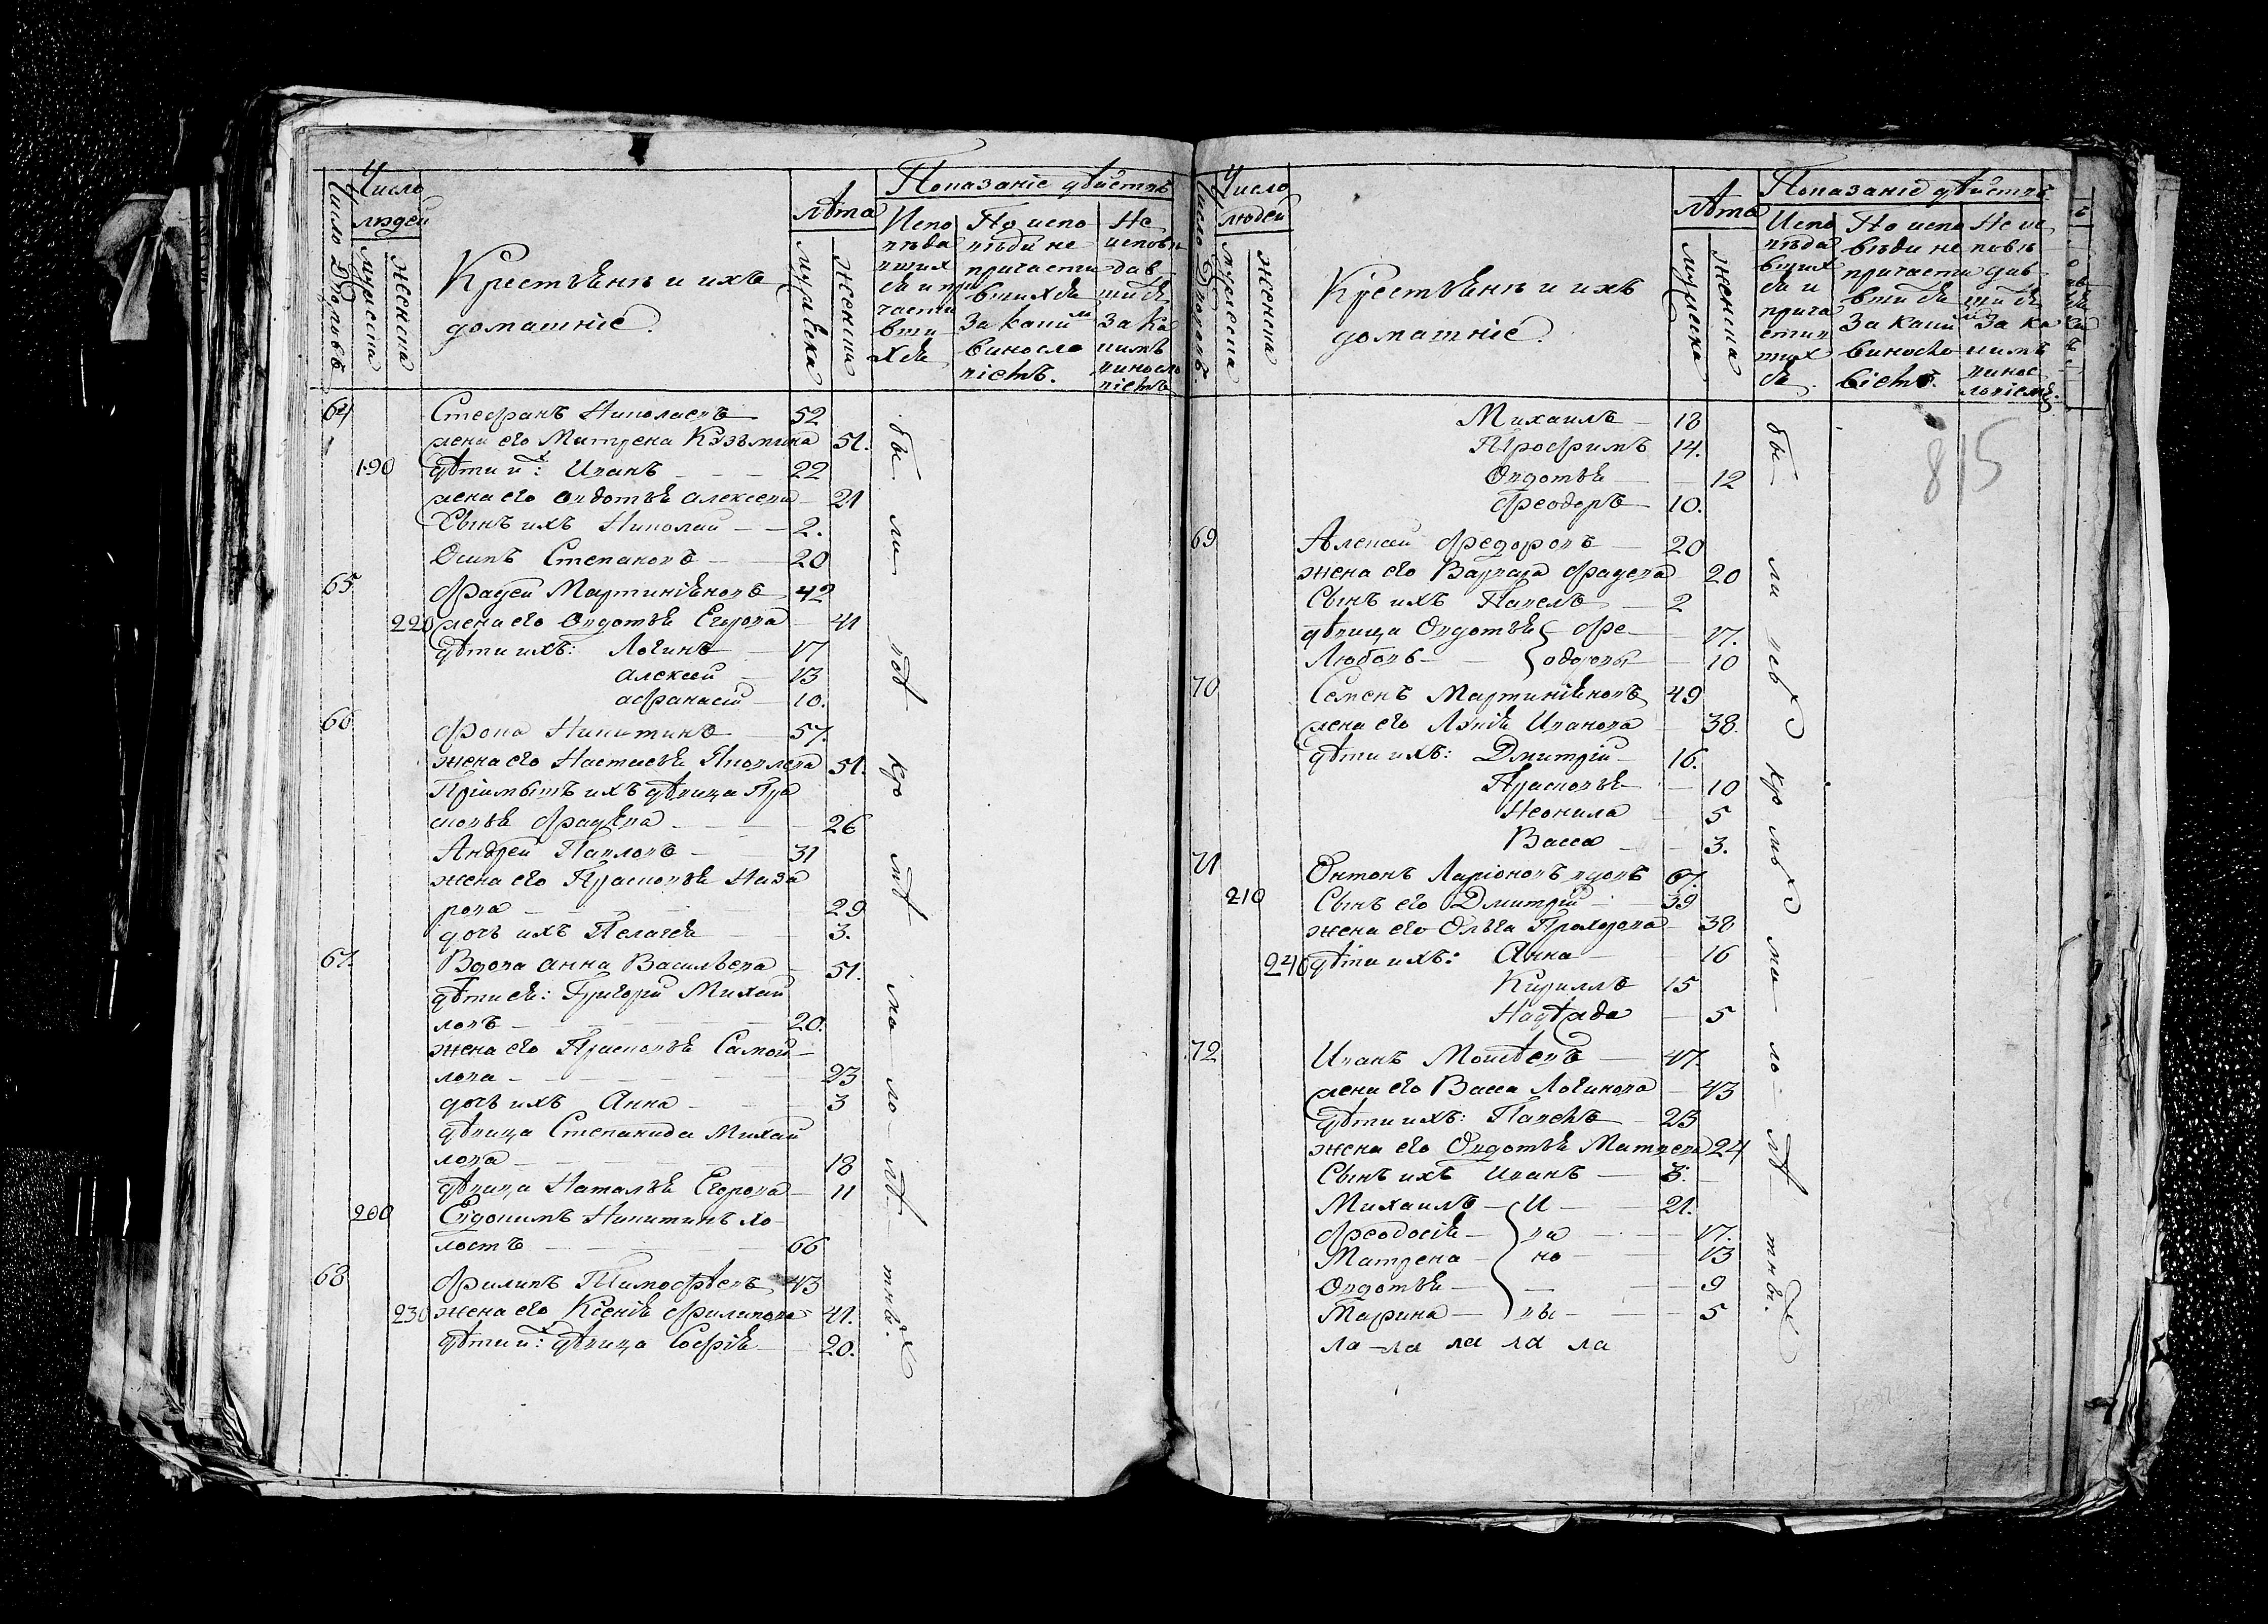 Число Дворовъ
Число
людей
мужеска
женска
Крестьянѣ и ихъ
домашніе.
лѣта
мужеска
женска
Показаніе дѣйствъ
Испо
вѣда
вших
ся и при
части
вши
хся
По испо
вѣди не
причасти
вшихся
За каким
виносло
вiемъ.
Не
испов
дав
шися
За ка
кимъ
виносло
вiемъ
64 Стефанъ Николаевъ 52
жена его Матрена Кузьмина 51.
190 дѣти их: Иванъ 22
жена его Овдотья Алексеева 21
Сынъ ихъ Николай 2.
Осипъ Степановъ 20
65 Фадей Мартиніяновъ 42
220 жена его Овдотья Егорова 41
дѣти ихъ: Логинъ 17
Алексей 13
Афанасий 10.
66 Фока Никитинъ 57.
жена его Настасья Яковлева 51.
Пріимышъ ихъ дѣвица Пра
сковья Фадѣева 26
Андрей Павловъ 31
жена его Прасковья Наза
рова 29
дочь ихъ Пелагея 3.
67. Вдова Анна Васильева 51.
дѣти ея: Григорій Михай
ловъ 20.
жена его Прасковья Самой
лова 23
дочь ихъ Анна 3
дѣвица Степанида Михай
лова 18
дѣвица Наталья Егорова 11
200 Євдокимъ Никитинъ хо
лостъ 66
68 Филипъ Тимофѣевъ 43
230 жена его Ксенія Филипова 41.
дѣти их: дѣвица Софія 20.
бы ли всѣ кро мѣ ма ло лѣ тны.х
Число Дворовъ.
Число
людей
мужеска
женска
Крестьянѣ и ихъ
домашніе.
лѣта
мужеска
женска
Показаніе дѣйствъ
Испо
вѣда
вших
ся и
прича
стив
ших
ся
По испо
вѣди не
причасти
вшися
За каким
виносло
вiемъ.
Не ис
повѣ
дав
шися
За ка
кимъ
винос
ловіемъ.
815
Михаилъ 18
Трофимъ 14.
Овдотья 12
Феодоръ 10.
69 Алексей Федоровъ 20
жена его Варвара Фадеева 20
Сынъ ихъ Павелъ 2
дѣвица Овдотья Фе 17.
Любовь одоровы 10
70 Семенъ Мартиніяновъ 49
жена его Лукія Иванова 38.
дѣти ихъ: Дмитрій 16.
Прасковья 10
Неонила 5
Васса 3.
71 Онтонъ Ларіоновъ вдовъ 67.
210 Сынъ его Дмитрій 39
жена его Ольга Прохорова 38
240 дѣти ихъ: Анна 16
Кириллъ 15
Надѣжда 5
72 Иванъ Моисѣевъ 47.
жена его Васса Логинова 43
дѣти ихъ: Павелъ 23
жена его Овдотья Матвеева 24
Сынъ ихъ Иванъ 3.
Михаилъ И 21.
Феодосія ва 17.
Матрена но 13
Овдотья 9
Марина вы 5
ла-ла ла ла ла
бы ли всѣх кр мѣх ма ло лѣ тны.х